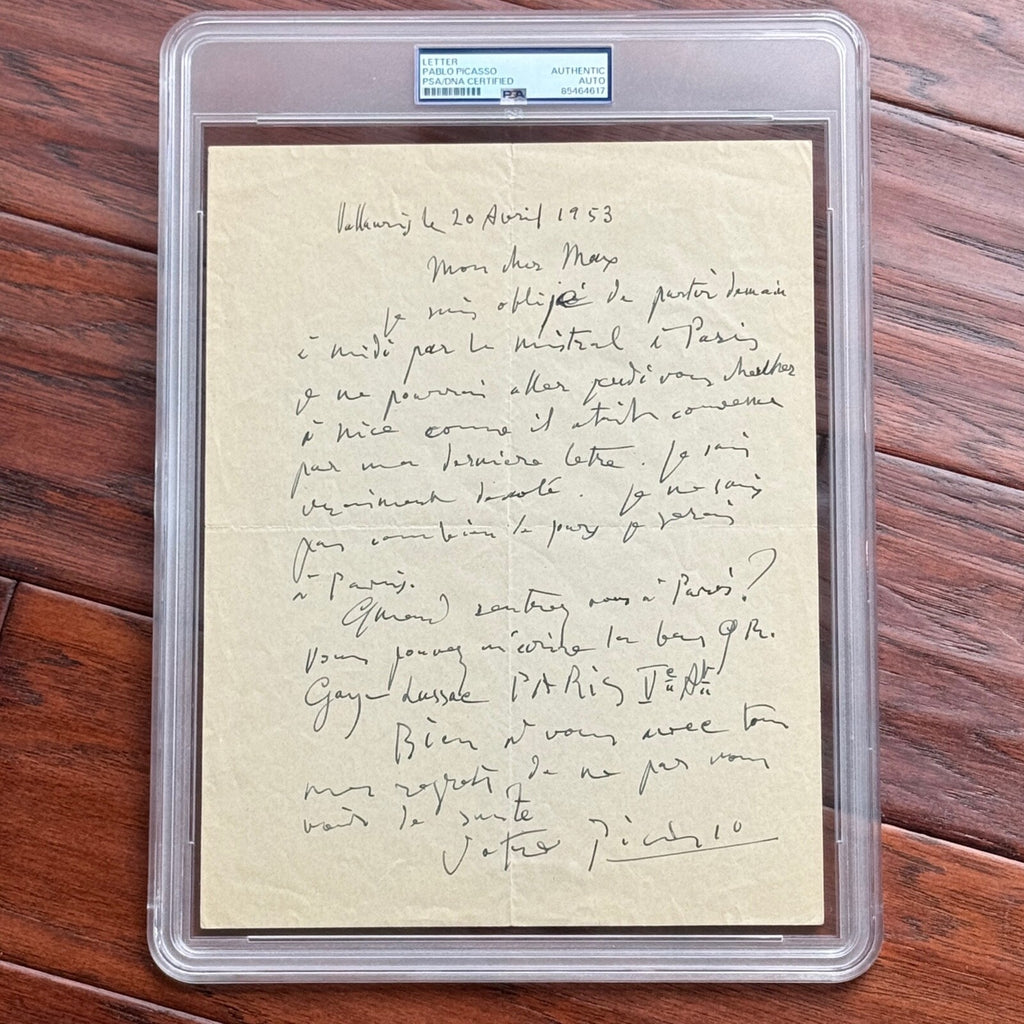 LETTER
PABLO PICASSO
PSA/DNA CERTIFIED
AUTHENTIC
AUTO
85464617
PSA
Vallauris le 20 Avril 1953
Mon cher Max
je suis obligé de partir demain
à midi par le mistral à Paris
je ne pourrai aller jeudi vous chercher
à Nice comme il etait convenu
par ma dernière letre. Je suis
vraiment desolé. Je ne sais
pas combien de jours je serais
à Paris.
Quand rentrez vous à Paris?
Vous pouvez m'écrire 9 R.
Gay-Lussac PARIS Ve At
Bien à vous avec tous
mes regrets de ne pas vous
voir de suite
Votre Picasso